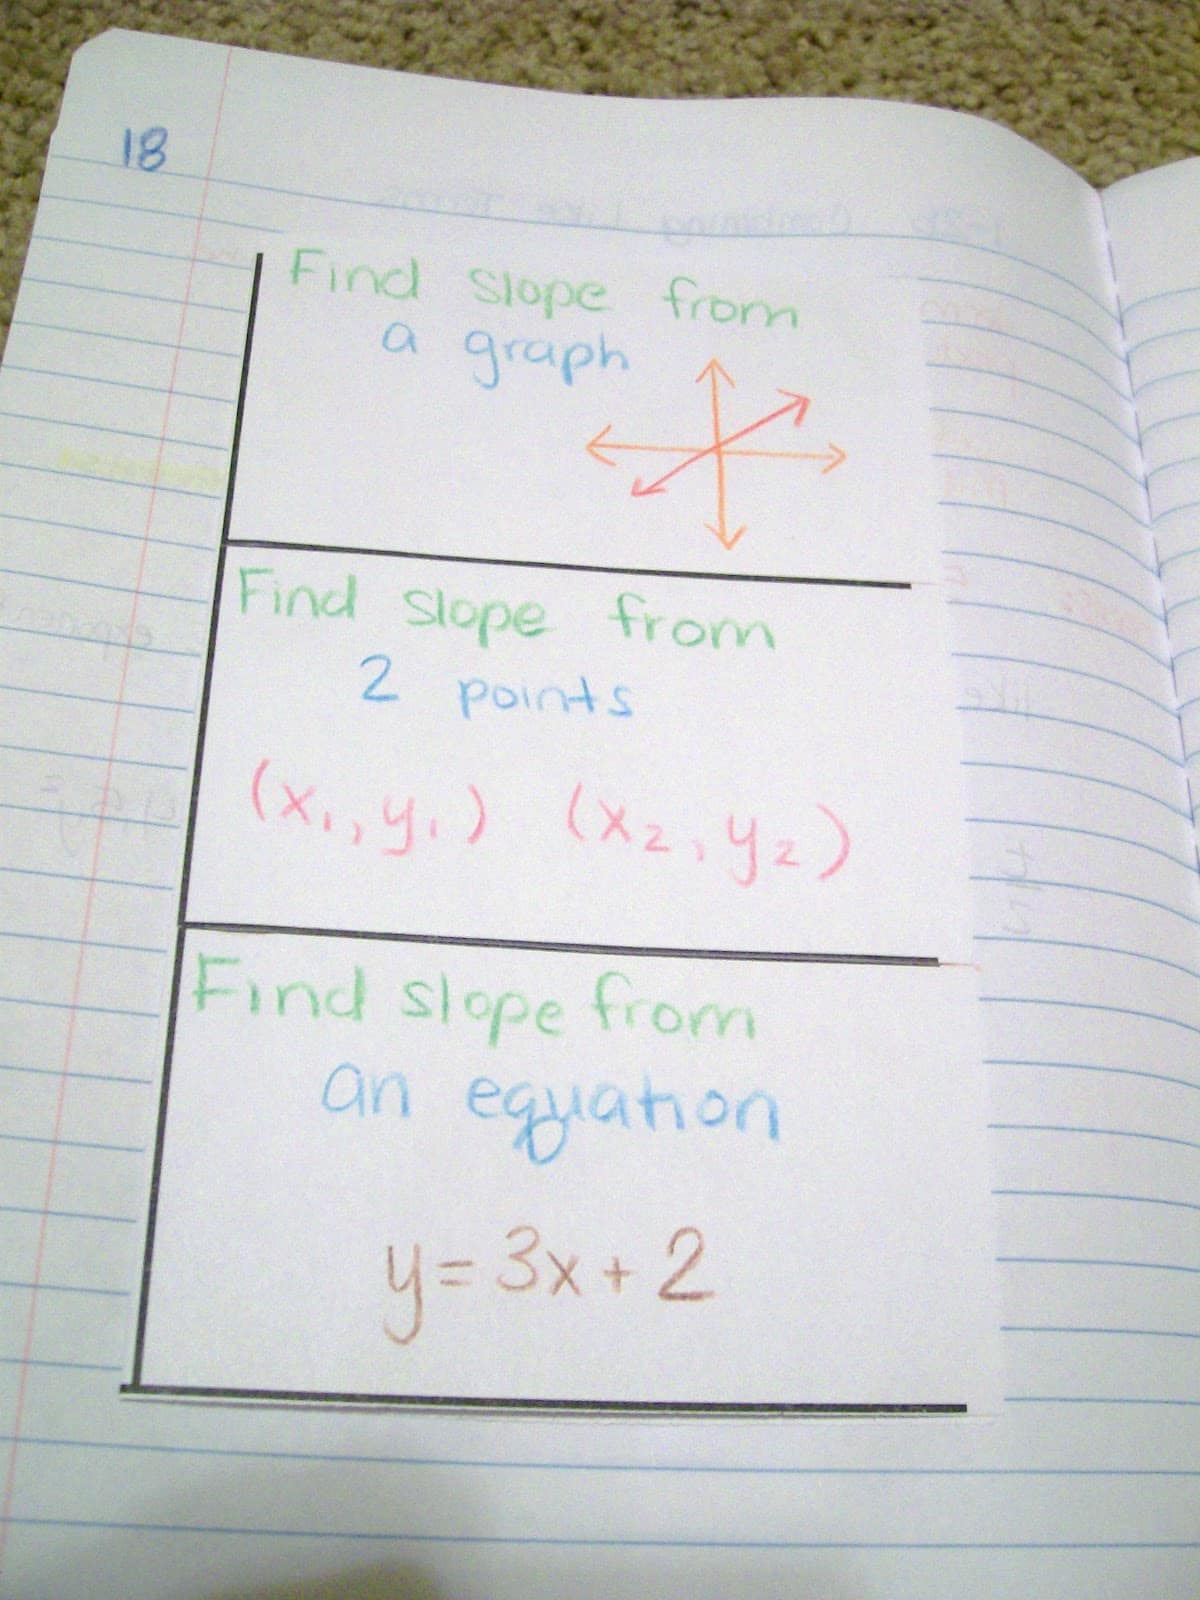 18
Find slope from
a graph
Find slope from
2 points
(x₁, y₁) (x₂, y₂)
Find slope from
an equation
y = 3x + 2